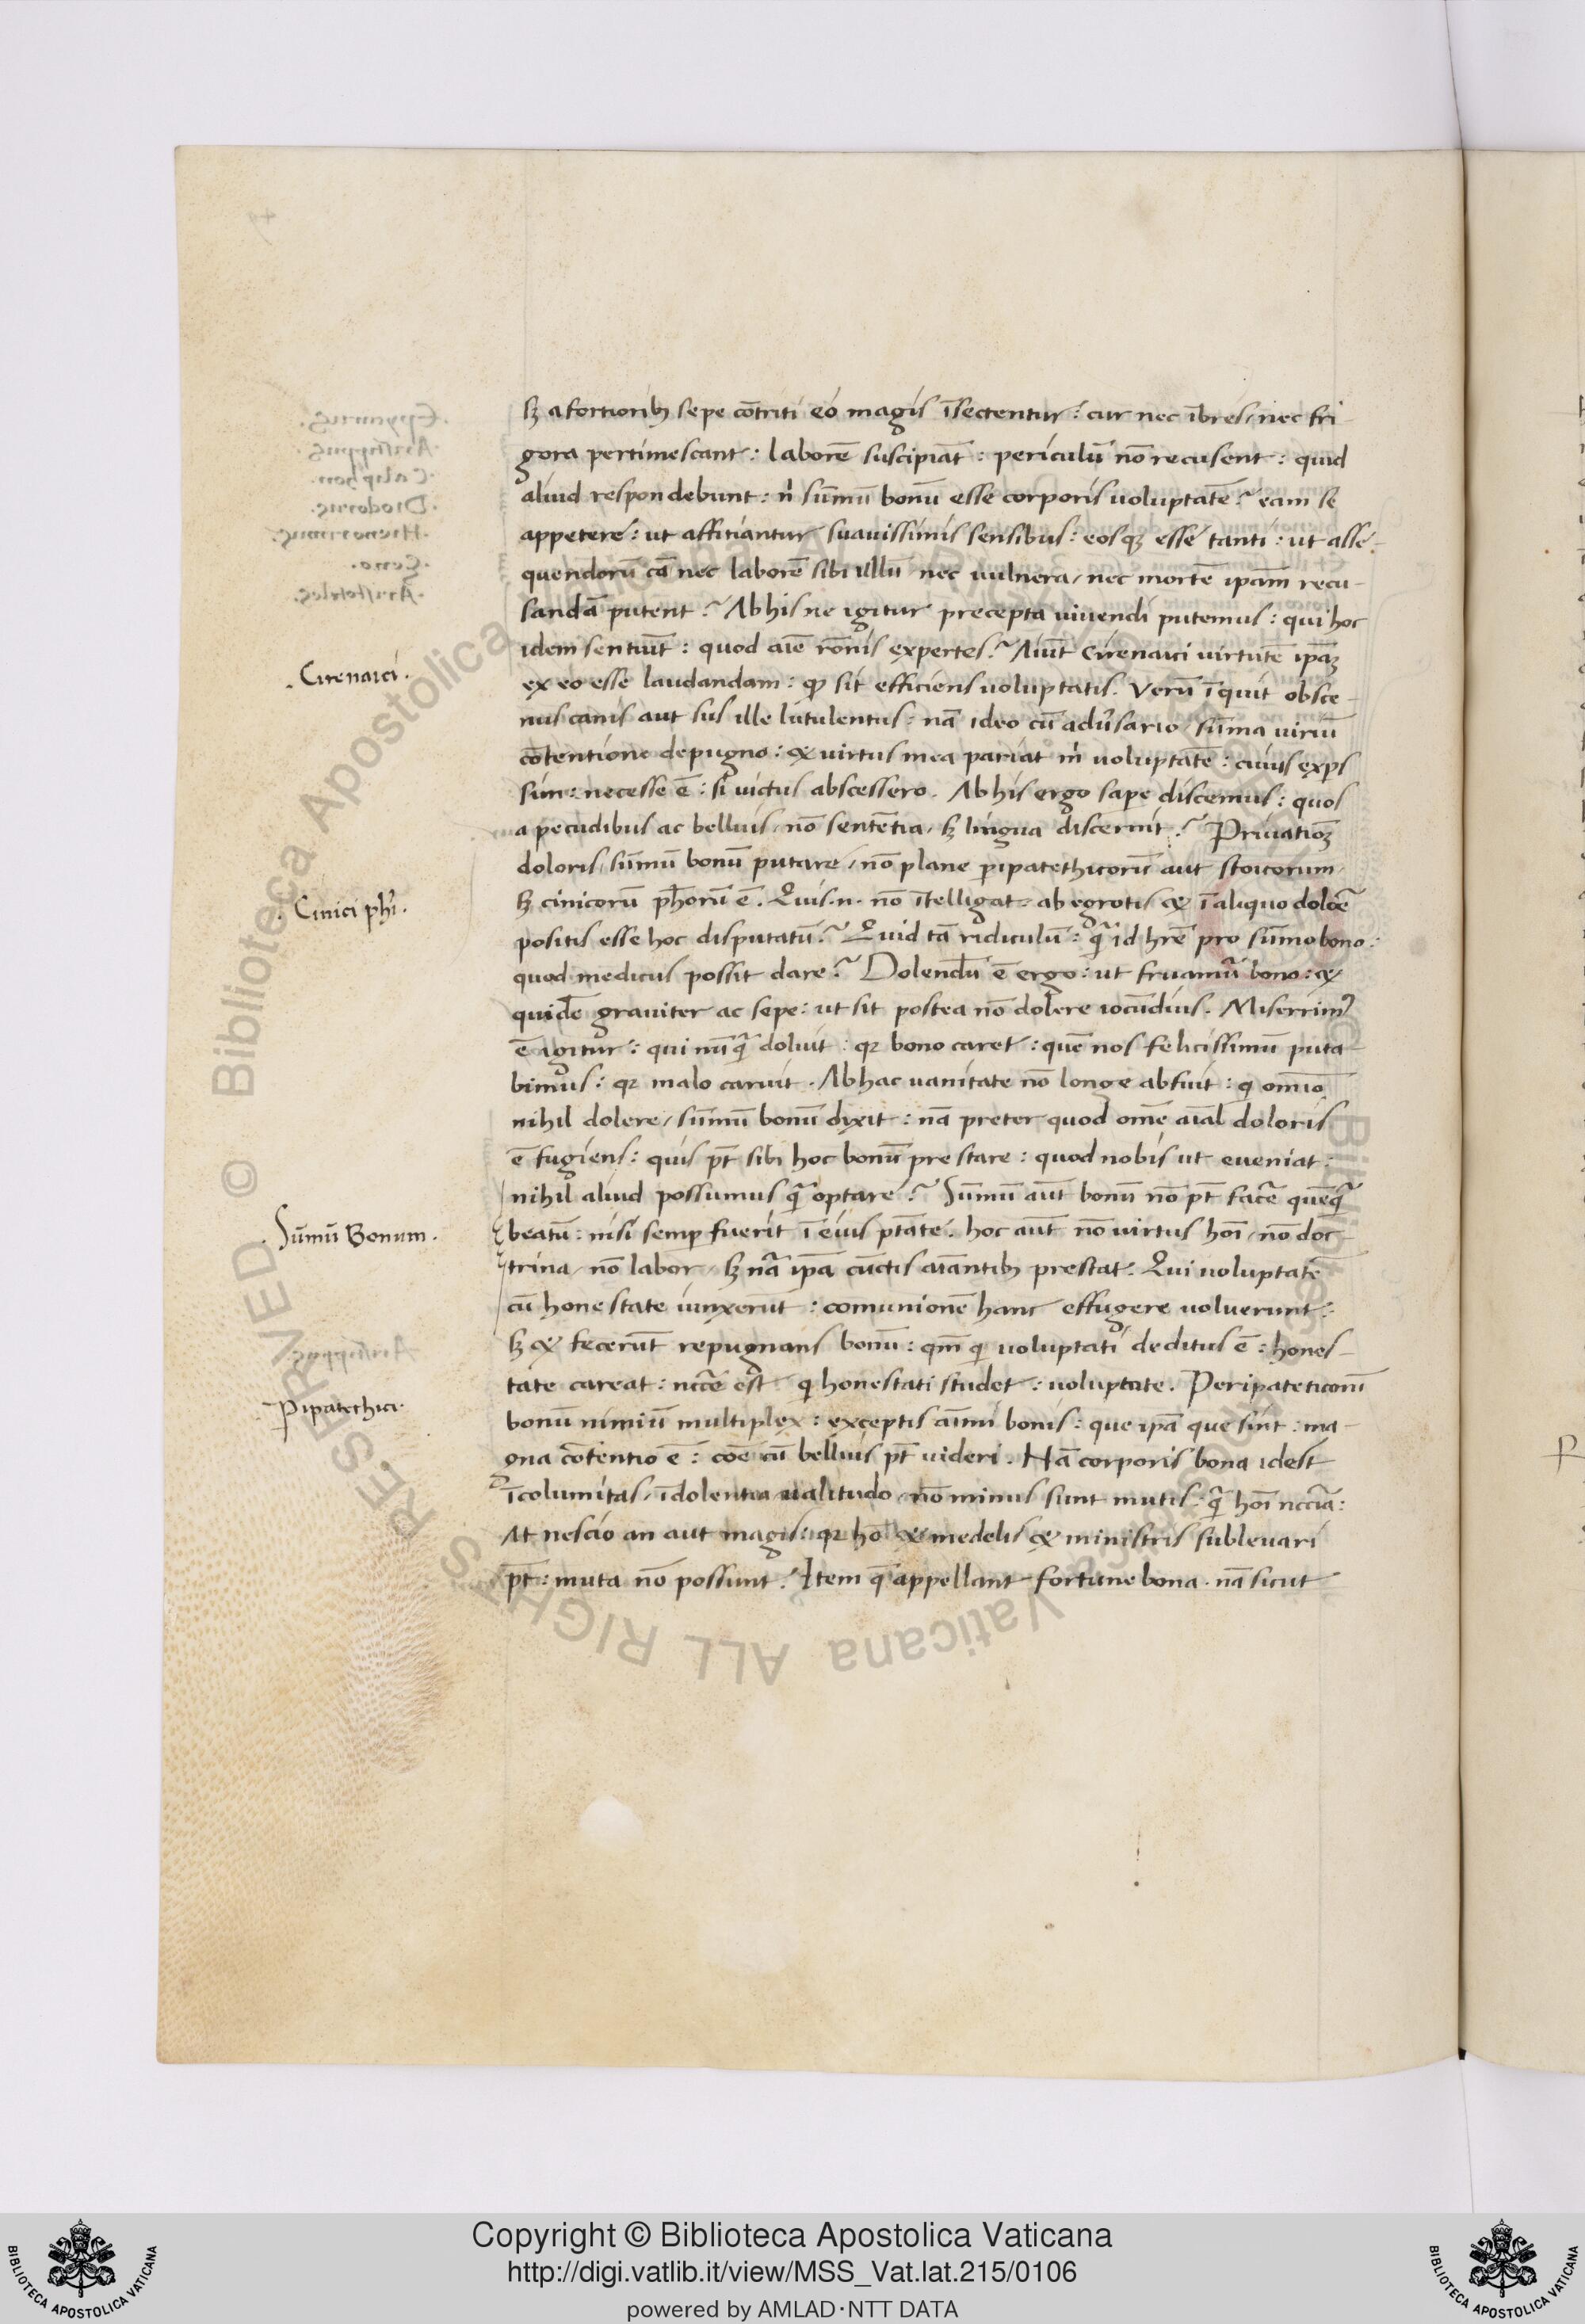 sꝫ a fortiorib₃ sepe cōtriti eo magis īsectentur: cur nec ībres, nec fri
gora pertimescant: laborē suscipiāt: periculū nō recusent: quid
aliud respondebunt: nⁱ sūmū bonū esse corporis voluptatē? eam se
appetere: ut affitiantur suavissimis sensibus: eosqꝫ esse tanti: ut asse-
quendorū cā nec laborē sibi ullū nec vulnera, nec mortē ipām recu-
sandā putent? Ab hisne igitur precepta vivendi putemus: qui hoc
idem sentiūt: quod aīe rōnis expertes? Aiūt Cirenaici virtutē ipāꝫ
ex eo esse laudandam: ꝙ sit efficiens voluptatis. Verū īquit obsce-
nus canis aut sus ille lutulentus: nā ideo cū adūsario, sūma viriū
cōtentione depugno: & virtus mea pariat mⁱ voluptatē: cuius exps
sim: necesse ē: si victus abscessero. Ab his ergo sapere discemus: quos
a pecudibus ac belluis, nō sentētia, sꝫ lingua discernit? Privatiōꝫ
doloris, sūmū bonū putare, nō plane pipatethicorū aut stoicorum,
sꝫ cinicorū phōrū ē. Quis .n. nō ītelligat, ab egrotis & ī aliquo dolōē
positis esse hoc disputatū? Quid tā ridiculū: q̄ id hrē pro sūmo bono:
quod medicus possit dare? Dolendū ē ergo: ut fruamur bono: &
quidē graviter ac sepe: ut sit postea nō dolere iocūdius. Miserrimꝰ
ē igitur: qui nūq̄ doluit: qꝛ bono caret: quē nos felicissimū puta-
bimus: qꝛ malo caruit. Ab hac vanitate nō longe abfuit: q omīo
nihil dolere, sūmū bonū dixit: nā preter quod omē aīal doloris
ē fugiens: quis pt̄ sibi hoc bonū prestare: quod nobis ut eveniat:
nihil aliud possumus q̄ optare? Sūmū aūt bonū nō pt̄ facē quēq̄
beatū: nisi semp fuerit ī eius ptāte. hoc aūt nō virtus hoī, nō doc-
trina, nō labor, sꝫ nā ipā cūctis aīantib₃ prestat. Qui voluptatē
cū honestate iunxerūt: comunionē hanc effugere voluerunt:
sꝫ & fecerūt repugnans bonū: qm̄ q voluptati deditus ē: hones-
tate careat: nccē est q honestati studet: voluptate. Peripateticorū
bonū nimiū multiplex: exceptis aīmi bonis: que ipā que sint: ma-
gna cōtentio ē: cōe cū belluis pt̄ videri. Nā corporis bona idest
īcolumitas, īdolentia valitudo, nō minus sunt mutis, q̄ hoī nccīa:
At nescio an aut magis: qꝛ hō & medelis & ministris sublevari
pt̄: muta nō possunt. Item q̄ appellant fortune bona. nā sicut
. Cirenaici .
. Cinici phⁱ .
. Sūmū Bonum .
. Pipatethici .
Copyright © Biblioteca Apostolica Vaticana
http://digi.vatlib.it/view/MSS_Vat.lat.215/0106
powered by AMLAD·NTT DATA
BIBLIOTECA APOSTOLICA VATICANA
BIBLIOTECA APOSTOLICA VATICANA
© Biblioteca Apostolica Vaticana ALL RIGHTS RESERVED